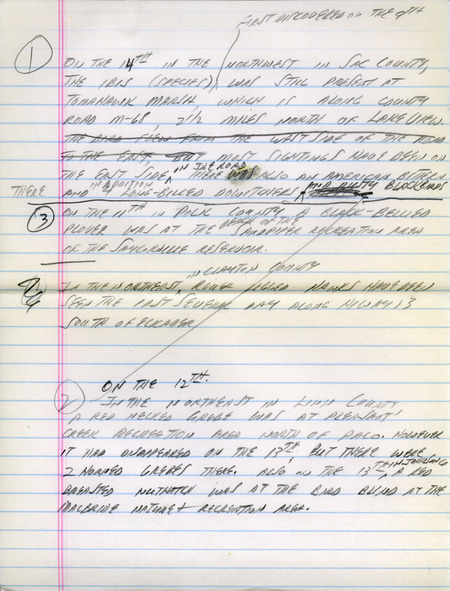 FIRST DISCOVERED ON THE 9TH
① ON THE 14TH IN THE NORTHWEST IN SAC COUNTY,
THE IBIS (SPECIES) WAS STILL PRESENT AT
TOMAHAWK MARSH, WHICH IS ALONG COUNTY
ROAD M-68, 2 1/2 MILES NORTH OF LAKE VIEW.
THE BIRD SEEN FROM THE WEST SIDE OF THE ROAD
TO THE EAST, BUT MOST SIGHTINGS HAVE BEEN ON
THE EAST SIDE, IN THE ROAD THERE WAS ALSO AN AMERICAN BITTERN
THERE
AND IN ADDITION 4 LONG-BILLED DOWITCHERS, AND RUSTY BLACKBIRDS
③ ON THE 11TH IN POLK COUNTY A BLACK-BELLIED
PLOVER WAS AT THE SANDPIPER RECREATION AREA
OF THE SAYLORVILLE RESERVOIR.
IN CLAYTON COUNTY
IN THE NORTHEAST, ROUGH LEGGED HAWKS HAVE BEEN
SEEN THE PAST SEVERAL DAY ALONG HIWAY 13
SOUTH OF ELKADER
ON THE 12TH.
② IN THE NORTHEAST IN LINN COUNTY
A RED NECKED GREBE WAS AT PLEASANT
CREEK RECREATION AREA NORTH OF PALO. HOWEVER
IT HAD DISAPPEARED ON THE 13TH, BUT THERE WERE
2 HORNED GREBES THERE. ALSO ON THE 13TH IN JOHNSON CO, A RED
BREASTED NUTHATCH WAS AT THE BIRD BLIND AT THE
MACBRIDE NATURE & RECREATION AREA.